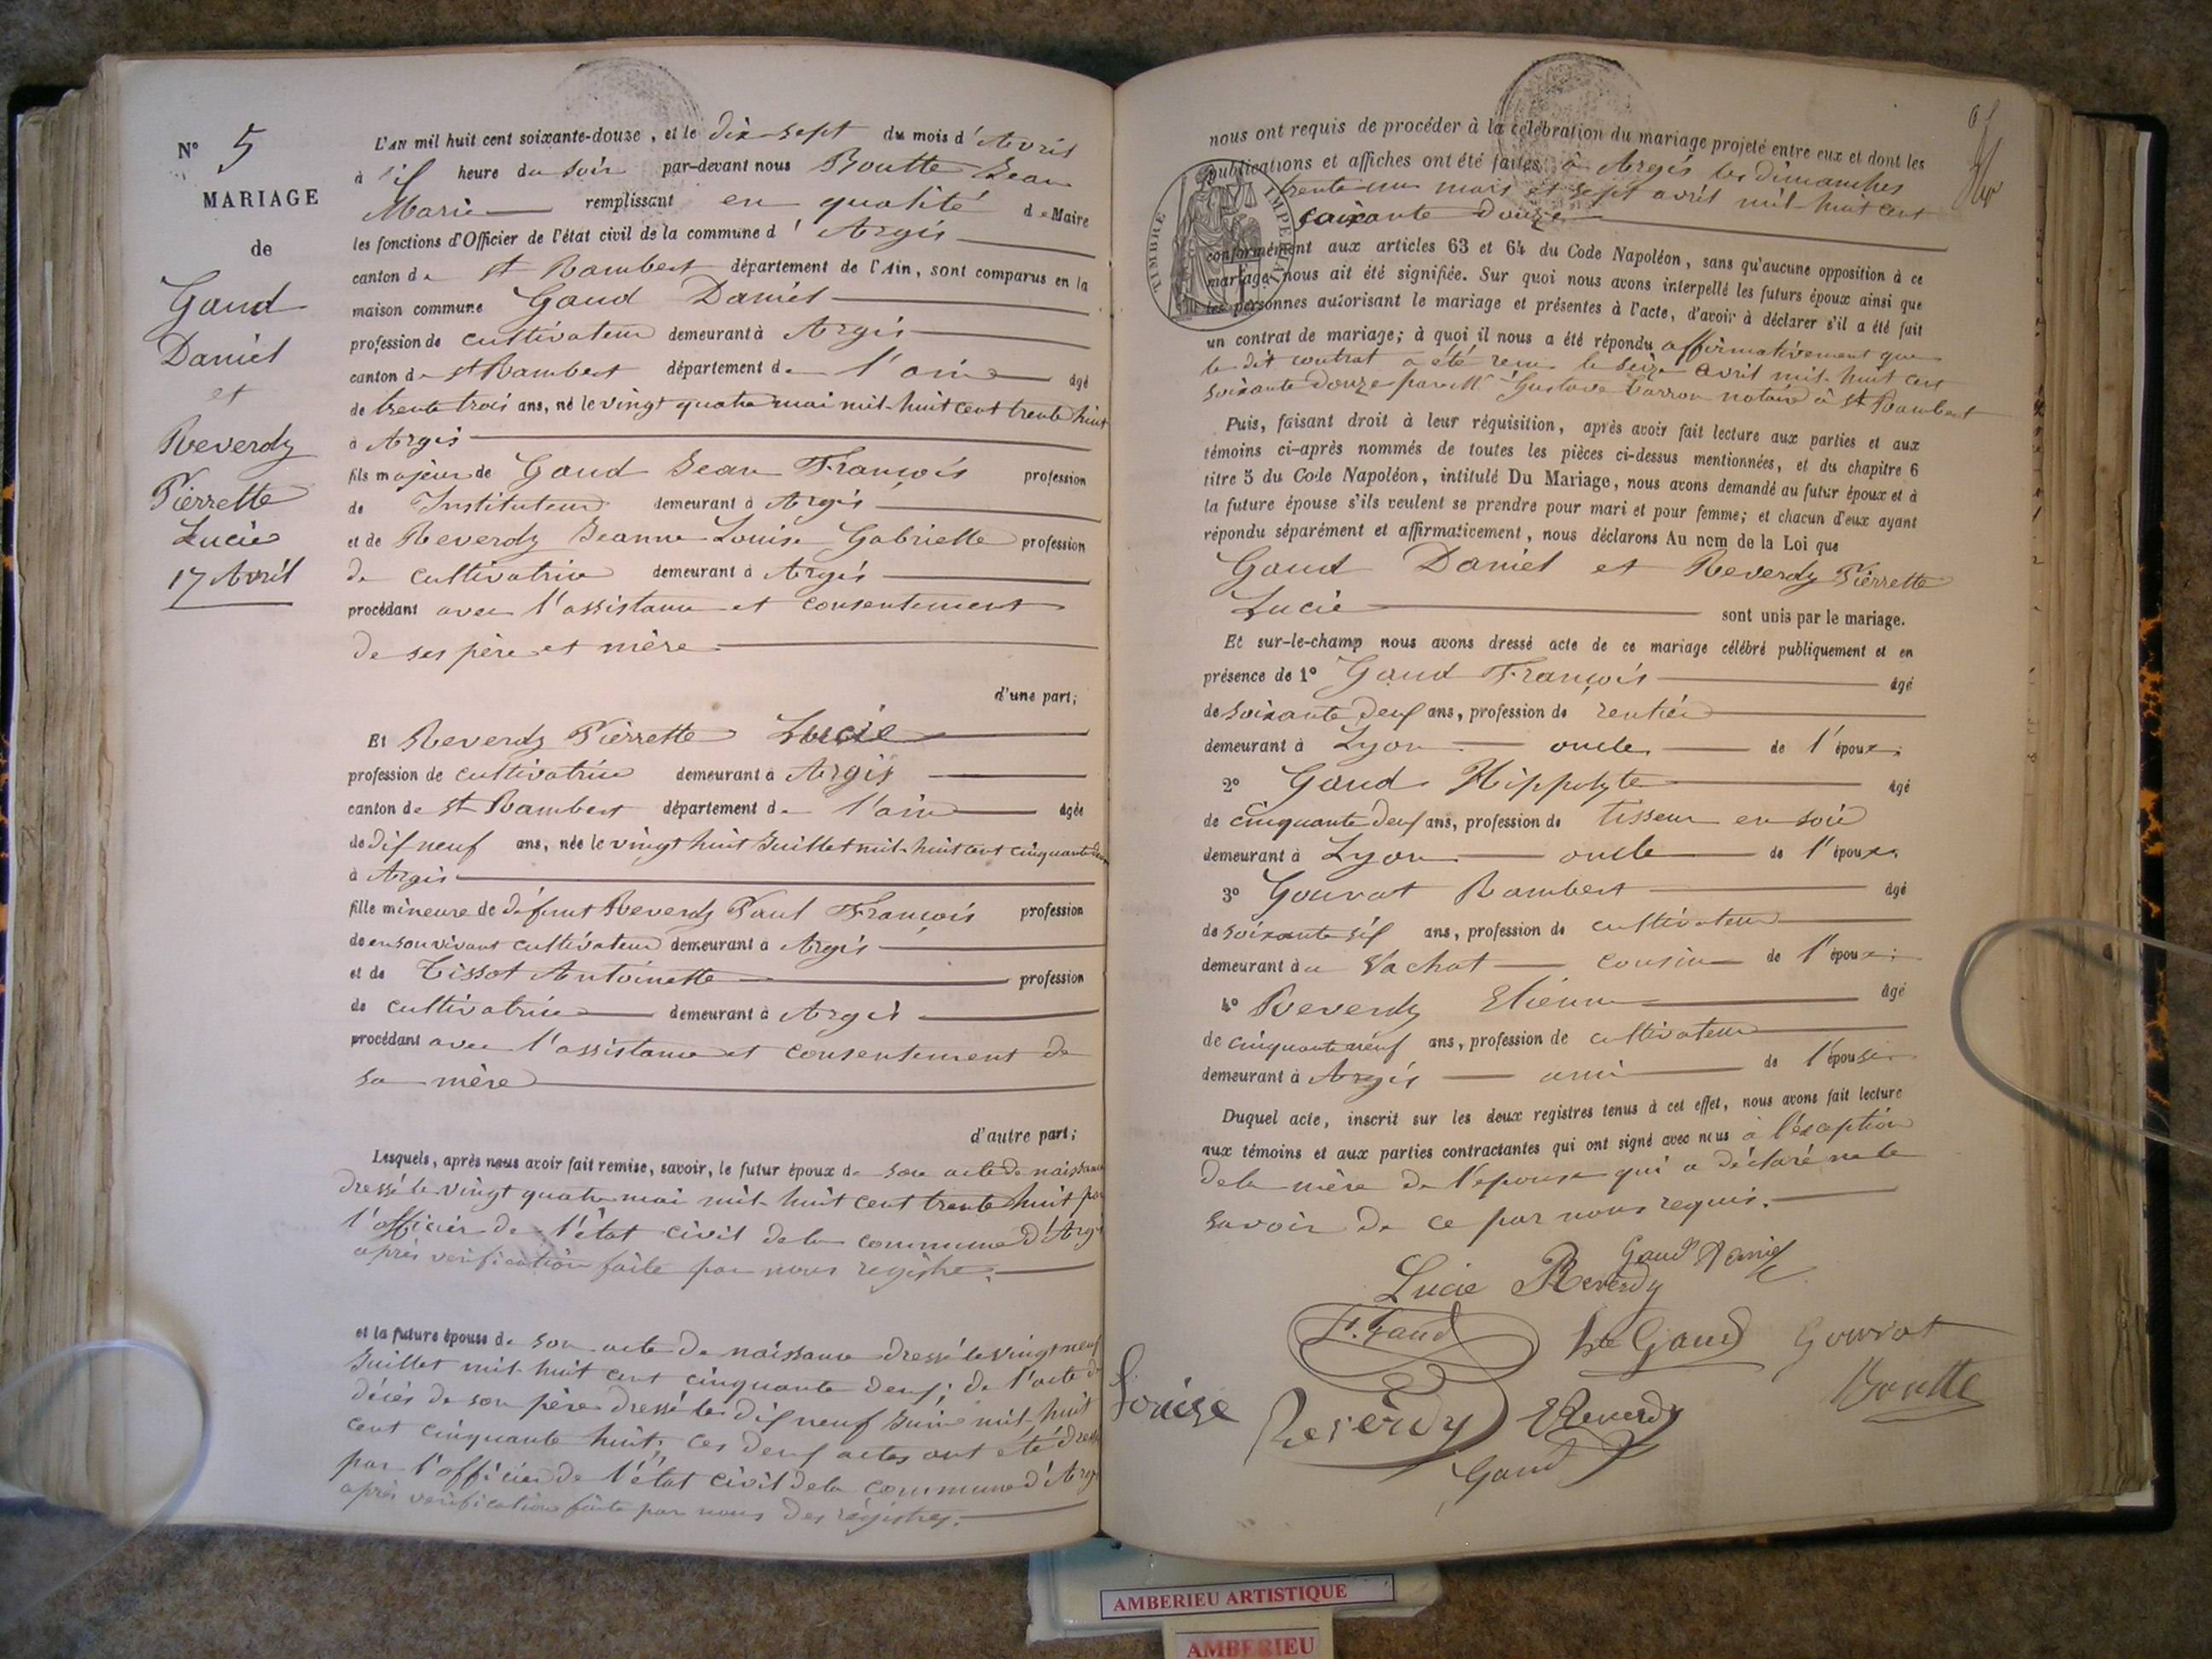 N° 5
MARIAGE
de
Gaud
Daniel
et
Reverdy
Pierrette
Lucie
17 Avril
L'AN mil huit cent soixante-douze, et le dix-sept du mois d'Avril
à sif heure du soir par-devant nous Boutte Jean
Marie remplissant en qualité de Maire
les fonctions d'Officier de l'état civil de la commune d'Argis
canton de st Rambert département de l'Ain, sont comparus en la
maison commune Gaud Daniel
profession de cultivateur demeurant à Argis
canton de st Rambert département de l'ain âgé
de trente trois ans, né le vingt quatre mai mil-huit cent trente huit
à Argis
fils majeur de Gaud Jean François profession
de Instituteur demeurant à Argis
et de Reverdy Jeanne Louise Gabrielle profession
de cultivatrice demeurant à Argis
procédant avec l'assistance et consentement
de ses père et mère
d'une part;
Et Reverdy Pierrette Lucie
profession de cultivatrice demeurant à Argis
canton de st Rambert département de l'ain âgée
de dif neuf ans, née le vingt huit Juillet mil-huit cent cinquante deux
à Argis
fille mineure de défunt Reverdy Paul François profession
de en son vivant cultivateur demeurant à Argis
et de Tissot Antoinette profession
de cultivatrice demeurant à Argis
procédant avec l'assistance et consentement de
sa mère
d'autre part;
Lesquels, après nous avoir fait remise, savoir, le futur époux de son acte de naissance
dressé le vingt quatre mai mil-huit cent trente huit par
l'officier de l'état civil de la commune d'Argis
après vérification faite par nous registre.
et la future épouse de son acte de naissance dressé le vingt neuf
Juillet mil-huit cent cinquante deux; de l'acte de
décès de son père dressé le dif neuf Juin mil-huit
cent cinquante huit; ces deux actes ont été dressés
par l'officier de l'état civil de la commune d'Argis
après vérification faite par nous des régistres.
nous ont requis de procéder à la célébration du mariage projeté entre eux et dont les
publications et affiches ont été faites à Argis les dimanches
trente un mars et sept avril mil-huit cent
soixante douze
TIMBRE IMPERIAL
conformément aux articles 63 et 64 du Code Napoléon, sans qu'aucune opposition à ce
mariage nous ait été signifiée. Sur quoi nous avons interpellé les futurs époux ainsi que
les personnes autorisant le mariage et présentes à l'acte, d'avoir à déclarer s'il a été fait
un contrat de mariage; à quoi il nous a été répondu affirmativement que
le dit contrat a été reçu le seize avril mil-huit cent
soixante douze par Me Gustave Carron notaire à St Rambert
Puis, faisant droit à leur réquisition, après avoir fait lecture aux parties et aux
témoins ci-après nommés de toutes les pièces ci-dessus mentionnées, et du chapitre 6
titre 5 du Code Napoléon, intitulé Du Mariage, nous avons demandé au futur époux et à
la future épouse s'ils veulent se prendre pour mari et pour femme; et chacun d'eux ayant
répondu séparément et affirmativement, nous déclarons Au nom de la Loi que
Gaud Daniel et Reverdy Pierrette
Lucie sont unis par le mariage.
Et sur-le-champ nous avons dressé acte de ce mariage célébré publiquement et en
présence de 1° Gaud François âgé
de soixante deux ans, profession de rentier
demeurant à Lyon oncle de l'époux;
2° Gaud Hippolyte âgé
de cinquante deux ans, profession de tisseur en soie
demeurant à Lyon oncle de l'époux;
3° Gouvat Rambert âgé
de soixante sif ans, profession de cultivateur
demeurant à u Vachat cousin de l'époux;
4° Reverdy Etienne âgé
de cinquante neuf ans, profession de cultivateur
demeurant à Argis ami de l'épouse
Duquel acte, inscrit sur les deux registres tenus à cet effet, nous avons fait lecture
aux témoins et aux parties contractantes qui ont signé avec nous à l'éxception
de la mère de l'épouse qui a déclaré ne le
savoir de ce par nous requis.
Gaud Daniel
Lucie Reverdy
F. Gaud hte Gaud Gouvat
Louise Reverdy E Reverdy Boutte
Gaud
AMBERIEU ARTISTIQUE
AMBERIEU